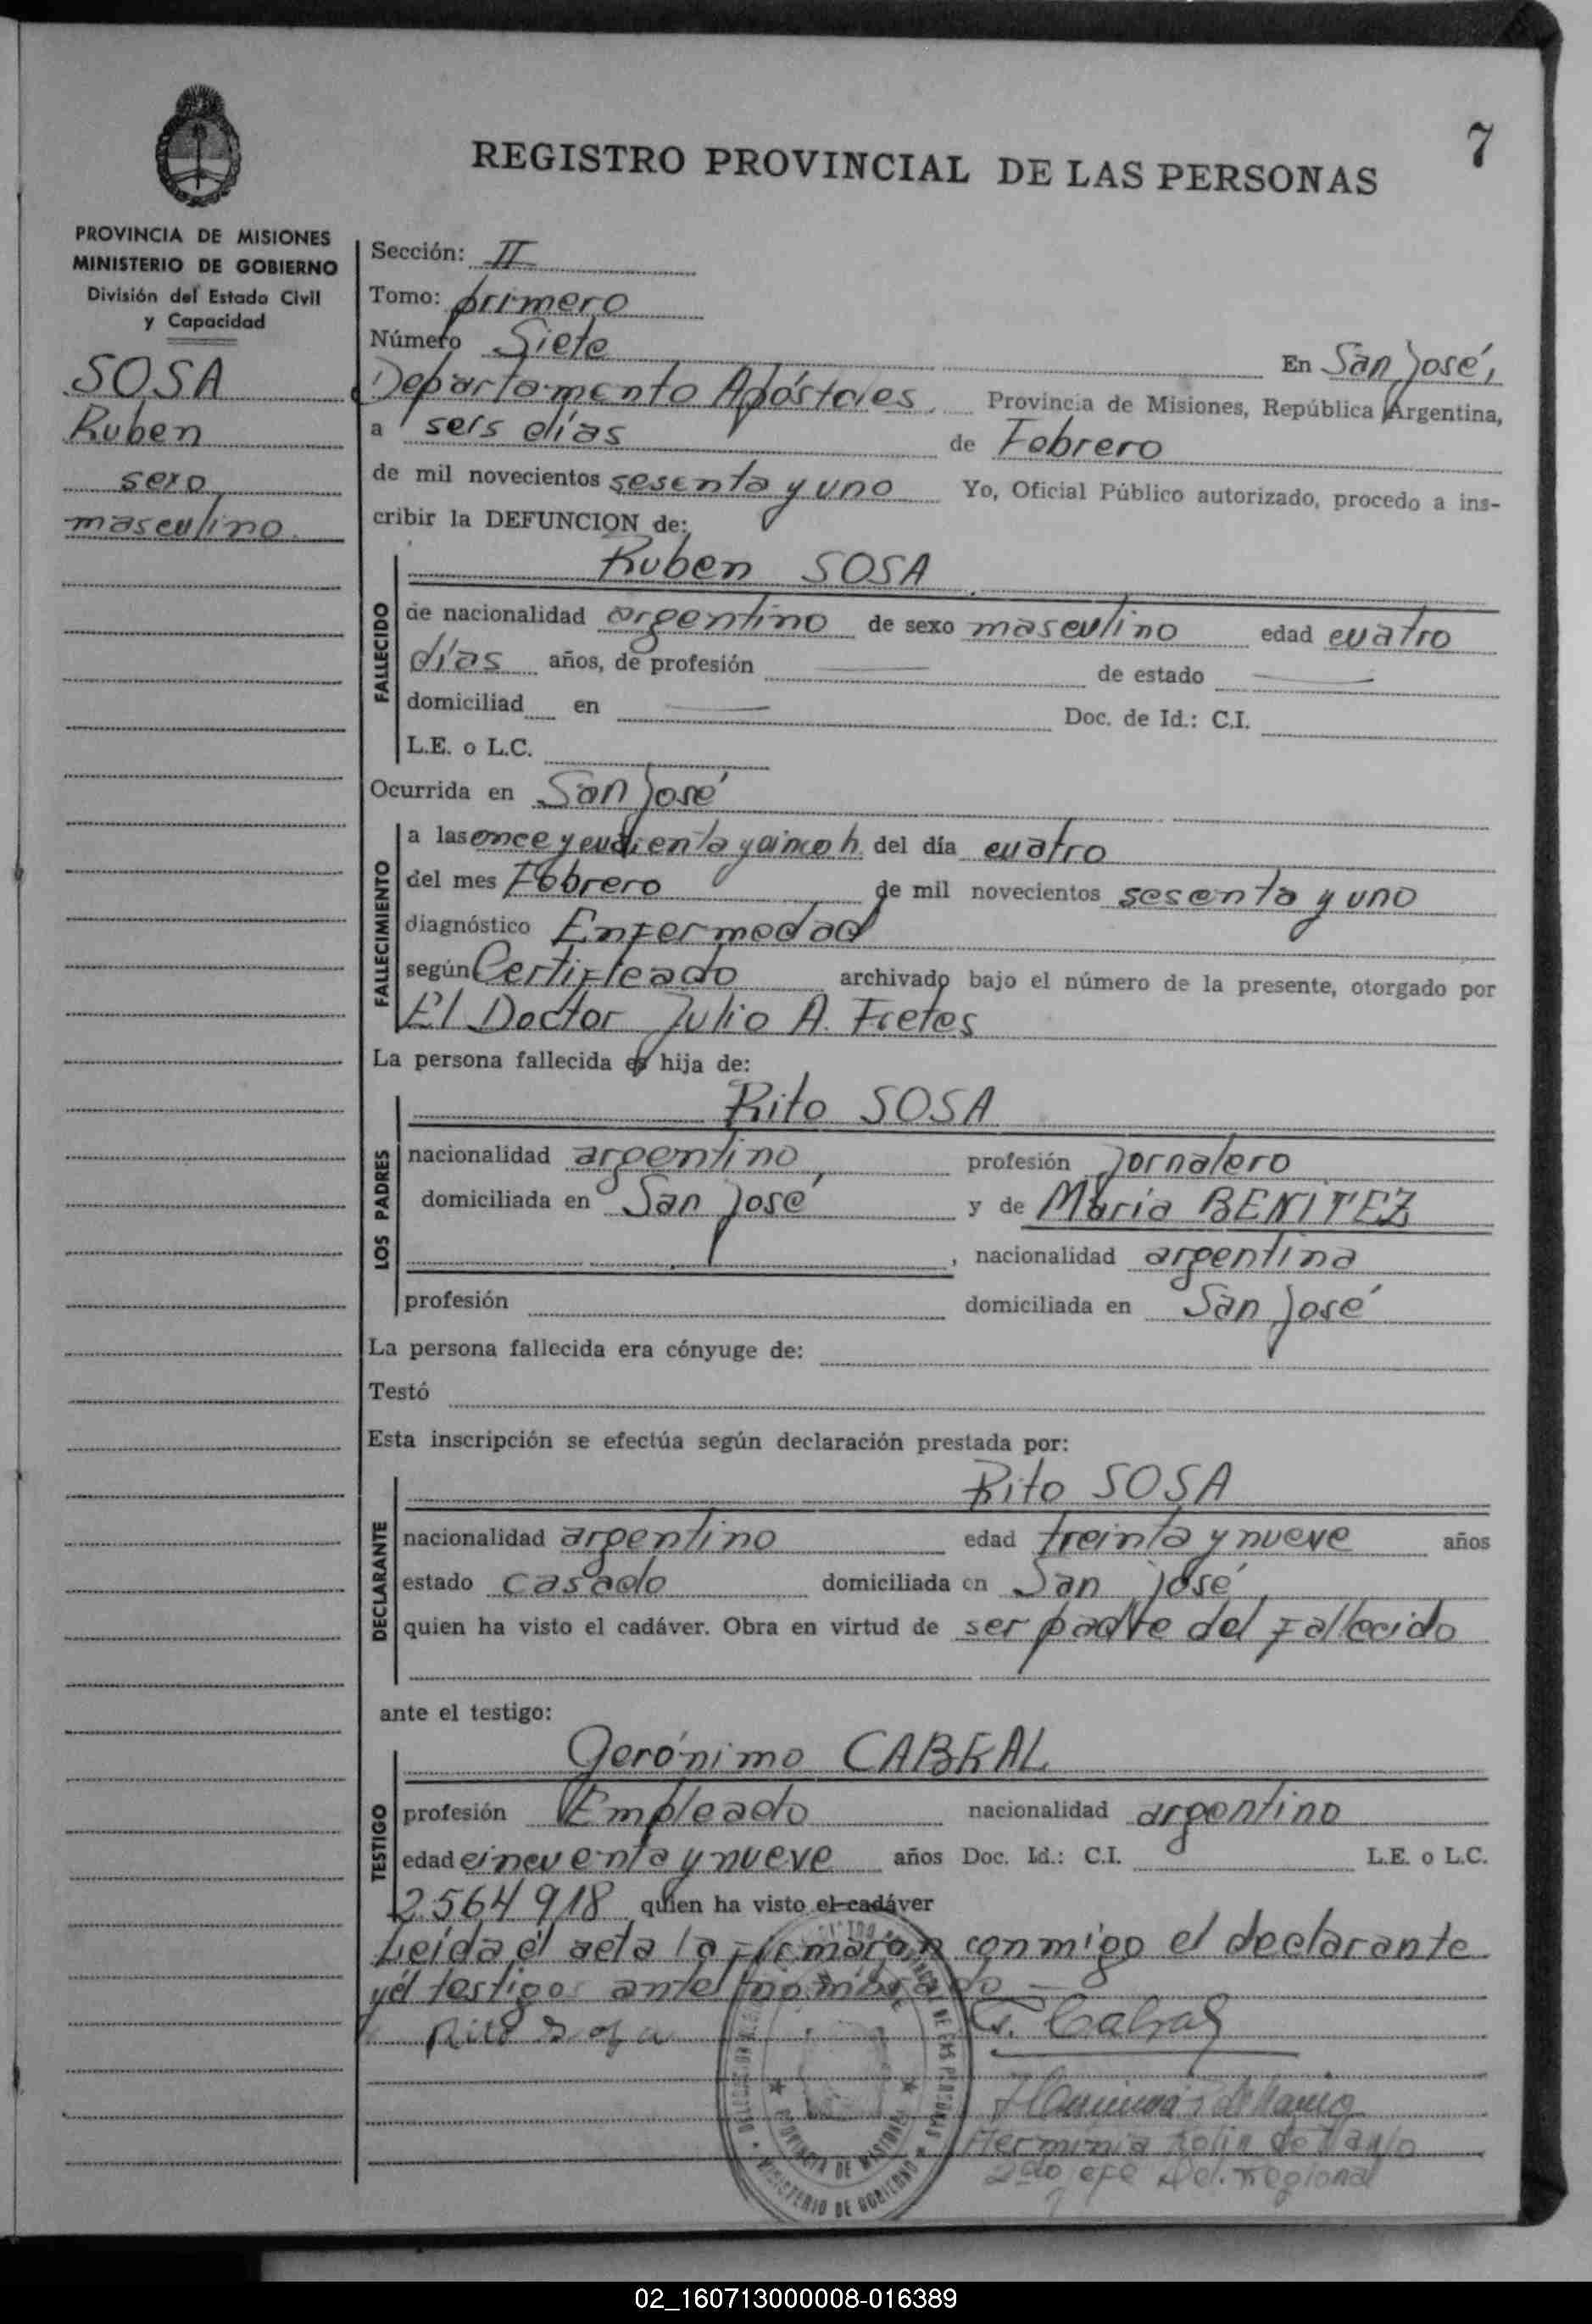 7
REGISTRO PROVINCIAL DE LAS PERSONAS
PROVINCIA DE MISIONES
MINISTERIO DE GOBIERNO
División del Estado Civil
y Capacidad
SOSA
Ruben
sexo
masculino.
Sección: II
Tomo: primero
Número Siete
En San José,
Departamento Apóstoles, Provincia de Misiones, República Argentina,
a seis días de Febrero
de mil novecientos sesenta y uno Yo, Oficial Público autorizado, procedo a ins-
cribir la DEFUNCION de:
Ruben SOSA
FALLECIDO
de nacionalidad argentino de sexo masculino edad cuatro
días años, de profesión — de estado —
domiciliad en — Doc. de Id.: C.I.
L.E. o L.C.
Ocurrida en San José
FALLECIMIENTO
a las once y cuarenta y cinco h. del día cuatro
del mes Febrero de mil novecientos sesenta y uno
diagnóstico Enfermedad
según Certificado archivado bajo el número de la presente, otorgado por
El Doctor Julio A. Fretes
La persona fallecida es hija de:
Rito SOSA
LOS PADRES
nacionalidad argentino, profesión Jornalero
domiciliada en San José y de María BENITEZ
, nacionalidad argentina
profesión domiciliada en San José
La persona fallecida era cónyuge de:
Testó
Esta inscripción se efectúa según declaración prestada por:
Rito SOSA
DECLARANTE
nacionalidad argentino edad treinta y nueve años
estado casado domiciliada en San José
quien ha visto el cadáver. Obra en virtud de ser padre del fallecido
ante el testigo:
Gerónimo CABRAL
TESTIGO
profesión Empleado nacionalidad argentino
edad cincuenta y nueve años Doc. Id.: C.I. L.E. o L.C.
2564918 quien ha visto el cadáver
Leída el acta la firmaron conmigo el declarante
y el testigo antes nombrado —
Rito Sosa
G. Cabral
Herminia
de
2do Jefe Del. Regional
PROVINCIA DE MISIONES
MINISTERIO DE GOBIERNO
DE LAS PERSONAS
02_160713000008-016389